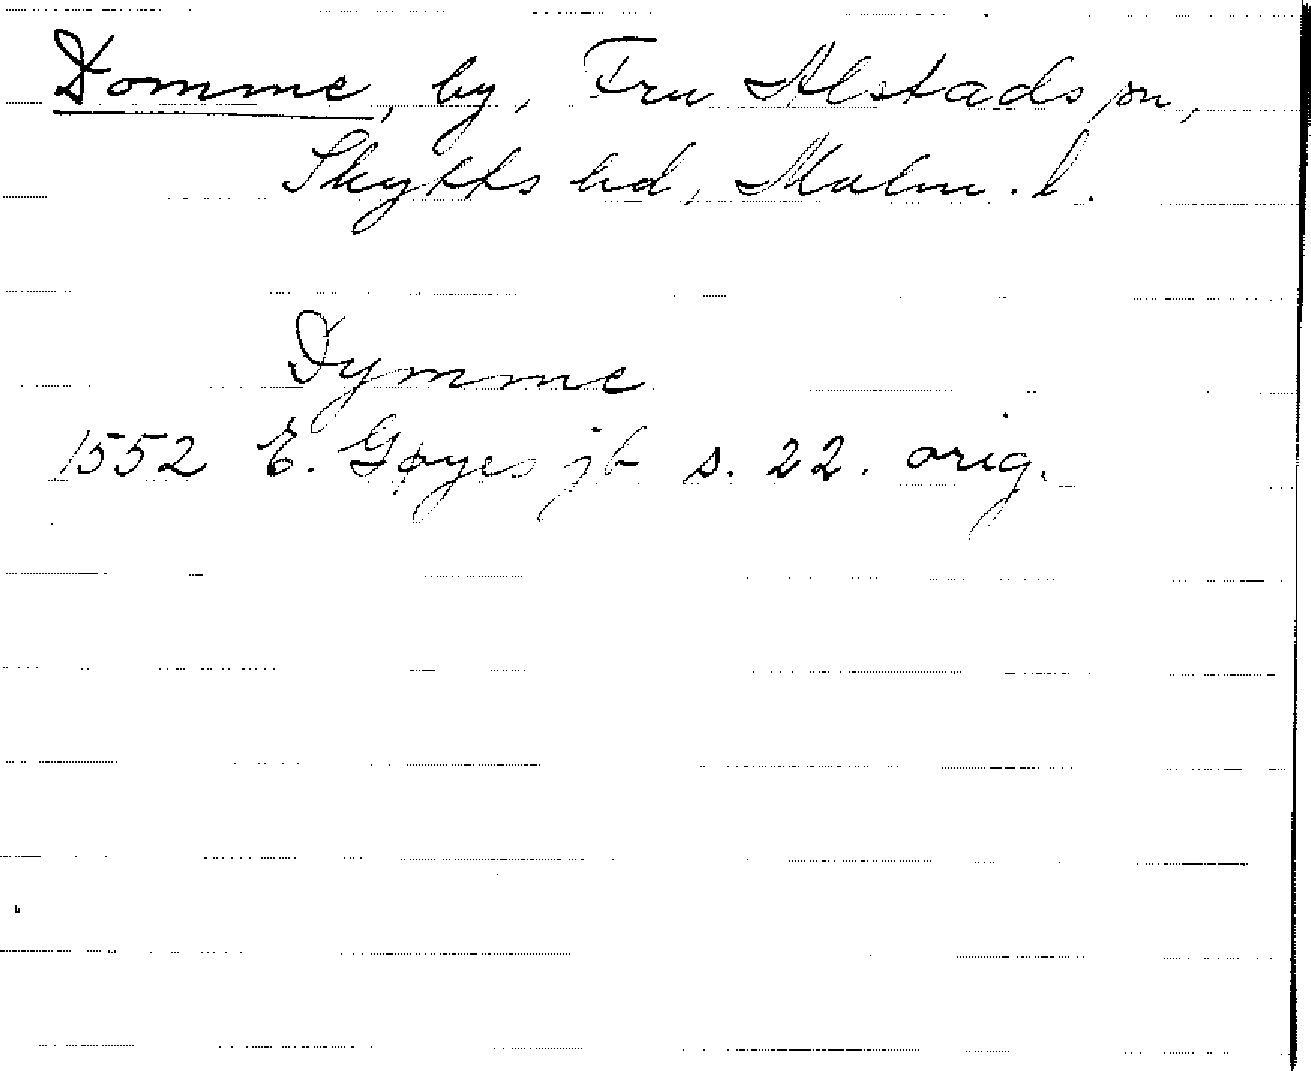 Domme, by, Fru Alstads sn,
Skytts hd, Malm. l.
Dymme
1552 E. Gøyes jb s. 22. orig.